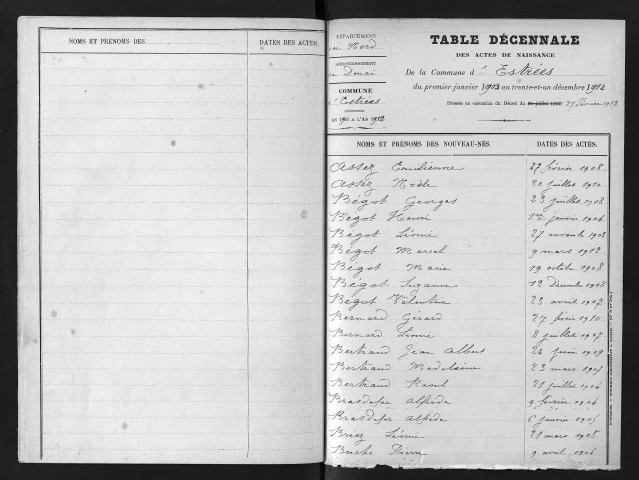 NOMS ET PRÉNOMS DES
DATES DES ACTES.
DÉPARTEMENT
du Nord
ARRONDISSEMENT
de Douai
COMMUNE
d'Estrées
TABLE DÉCENNALE
DES ACTES DE NAISSANCE
De la Commune d'Estrées
du premier janvier 1903 au trente-et-un décembre 1912
Dressée en exécution du Décret du 20 juillet 1807. 25 Février 1913
NOMS ET PRÉNOMS DES NOUVEAU-NÉS. DATES DES ACTES.
Assez Emilienne 27 février 1908
Assez Noële 20 juillet 1910
Bégot Georges 23 juillet 1908
Bégot Henri 1er janvier 1906
Bégot Léonie 27 novembre 1903
Bégot Marcel 9 mars 1912
Bégot Marie 19 octobre 1908
Bégot Suzanne 12 Décembre 1905
Bégot Valentine 23 avril 1907
Bernard Gérard 27 février 1910
Bernard Léonie 8 juillet 1907
Bertrand Jean Albert 24 juin 1909
Bertrand Madeleine 23 mars 1907
Bertrand Raoul 21 juillet 1904
Brasdefer Alfred 9 février 1904
Brasdefer Alfred 6 janvier 1905
Briez Léonie 21 mars 1908
Buche Pierre 9 avril 1906